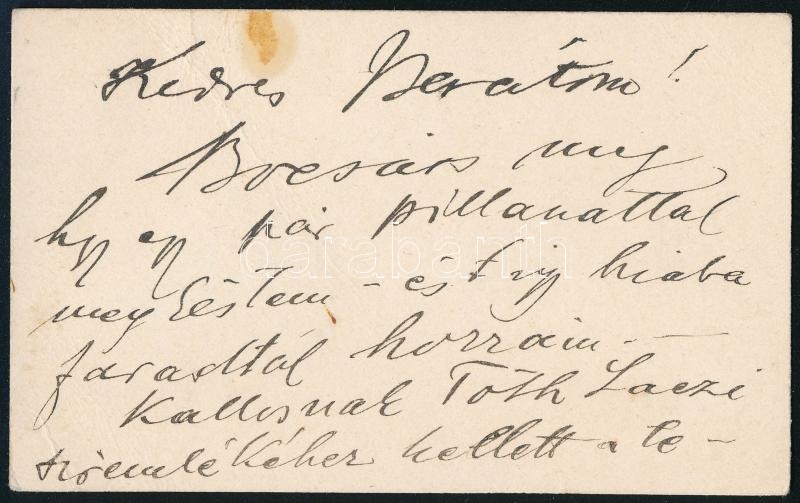 Kedves Barátom!
Bocsáss meg,
hy egy pár pillanattal
meg késtem – és így hiaba
faradtál hozzám. –
Kallosnak Tóth Laczi
siremlékéhez kellett a le-
darabanth